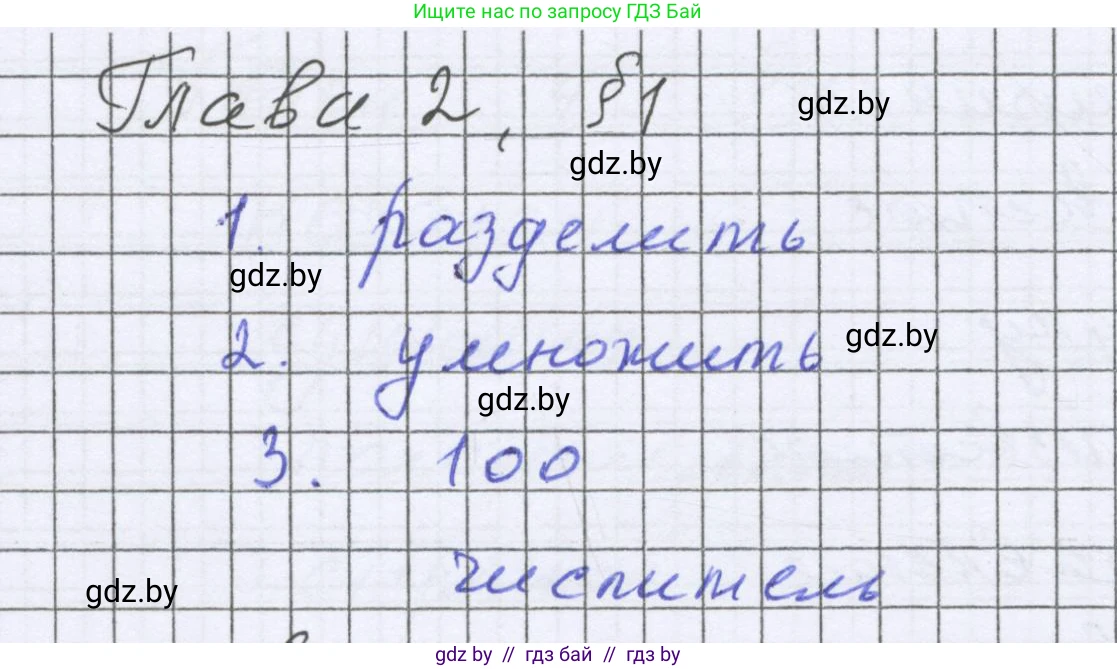 Ищите нас по запросу ГДЗ Бай
Глава 2, §1
gdz.by
gdz.by
1. разделить
gdz.by
2. умножить
gdz.by
gdz.by
3. 100
числитель
gdz.by
gdz by // гдз бай // гдз by